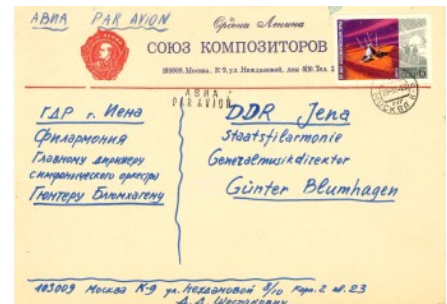 АВИА PAR AVION
Ордена Ленина
СОЮЗ КОМПОЗИТОРОВ
103009, Москва, К-9, ул Неждановой, дом 8/10. Тел. 2
АВИА
PAR AVION
МОСКВА
ГДР г. Иена
Филармония
Главному дирижеру
симфонического оркестра
Гюнтеру Блюмхагену
DDR Jena
Staatsfilarmonie
Generalmusikdirektor
Günter Blumhagen
103009 Москва К-9 ул. Неждановой 8/10 корп. 2 кв. 23
Д. Д. Шостакович